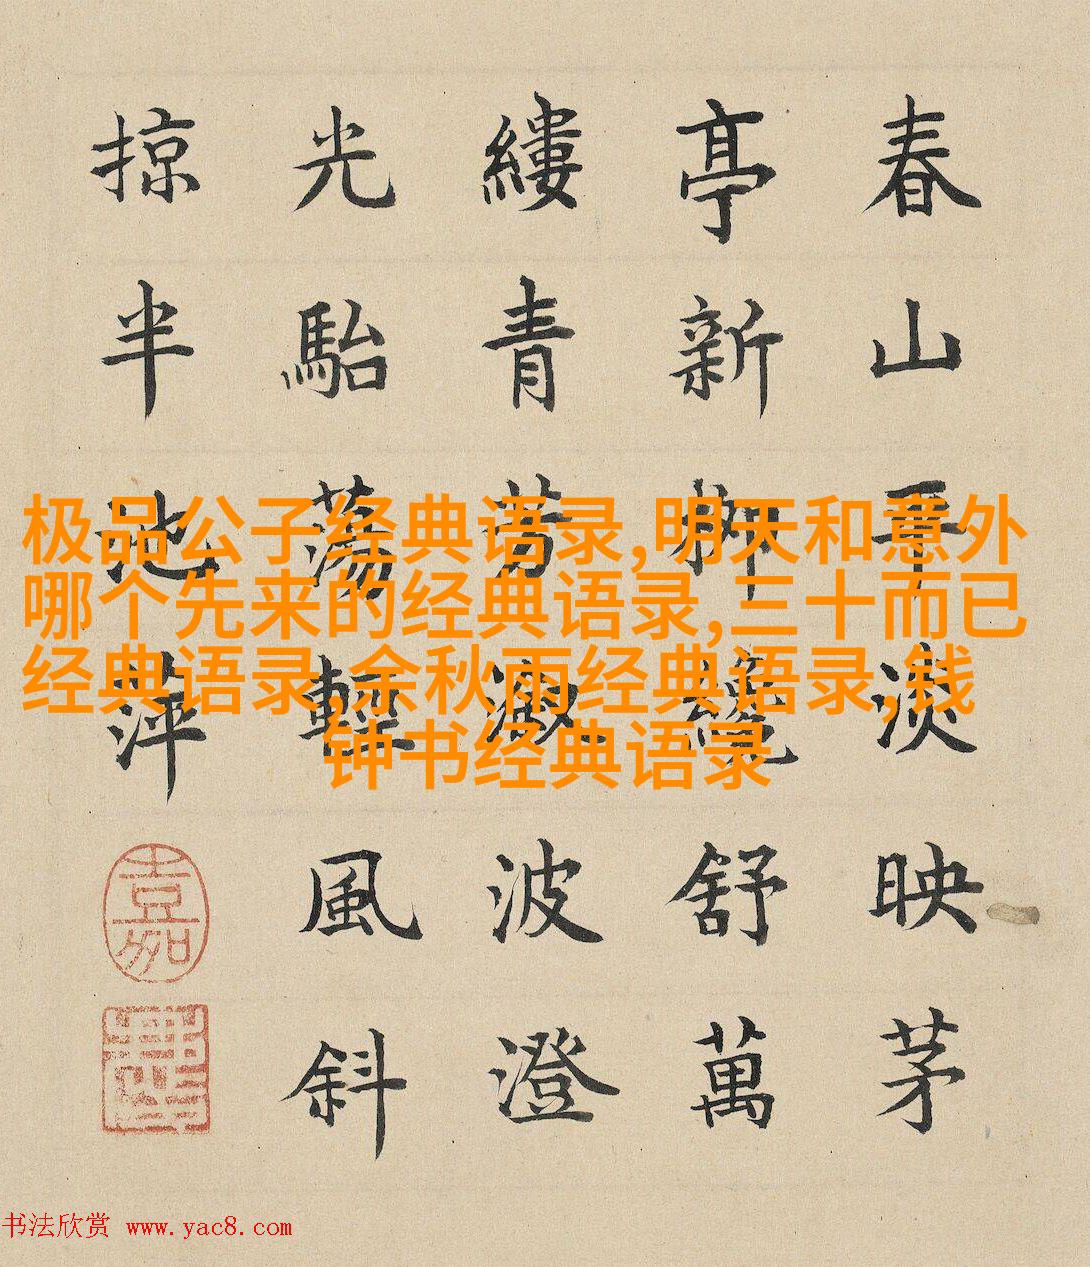 春山平淡映茅
亭新柳纔舒萬
縷青芳漵波澄
光駘蕩輕風斜
掠半池萍
极品公子经典语录,明天和意外
哪个先来的经典语录,三十而已
经典语录,余秋雨经典语录,钱
钟书经典语录
书法欣赏 www.yac8.com